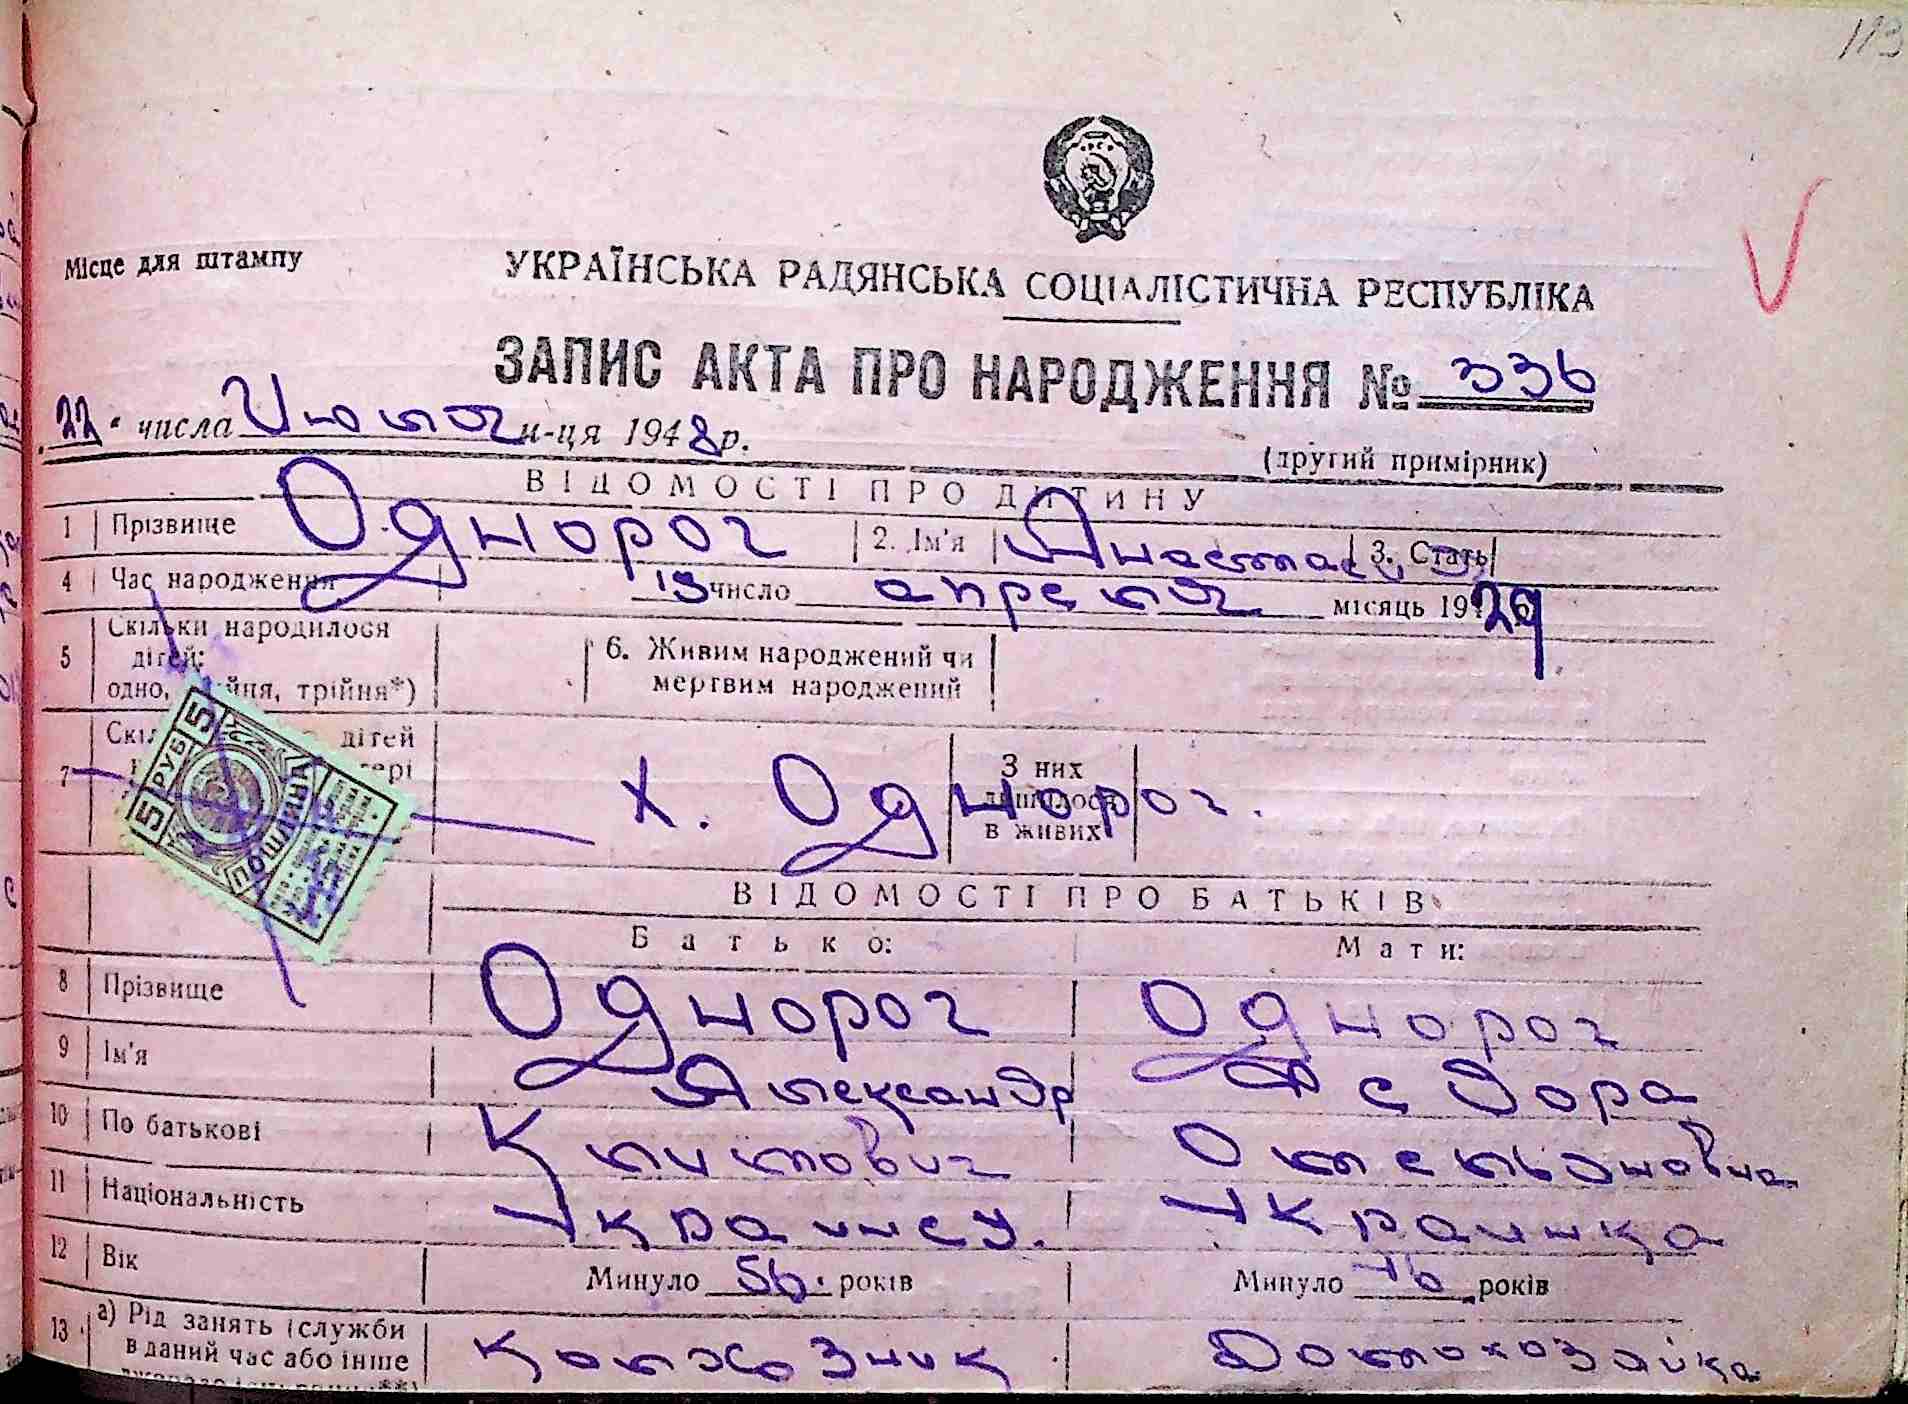 113
Місце для штампу
УКРАЇНСЬКА РАДЯНСЬКА СОЦІАЛІСТИЧНА РЕСПУБЛІКА
ЗАПИС АКТА ПРО НАРОДЖЕННЯ № 336
"22" числа Июля м-ця 1948 р.
(другий примірник)
ВІДОМОСТІ ПРО ДИТИНУ
1 Прізвище Однорог 2. Ім'я 3. Стать
4 Час народження 19 число апреля місяць 1929
5 Скільки народилося дітей: одно, двійня, трійня*) 6. Живим народжений чи мертвим народжений
7 дітей З них лишилося в живих
Х. Однорог.
5 РУБ 5
ВІДОМОСТІ ПРО БАТЬКІВ
Батько: Мати:
8 Прізвище Однорог Однорог
9 Ім'я Александр Федора
10 По батькові Омельяновна
11 Національність Украинец. Украинка
12 Вік Минуло 56. років Минуло років
13 а) Рід занять (служби в даний час або інше колхозник Домохозяйка